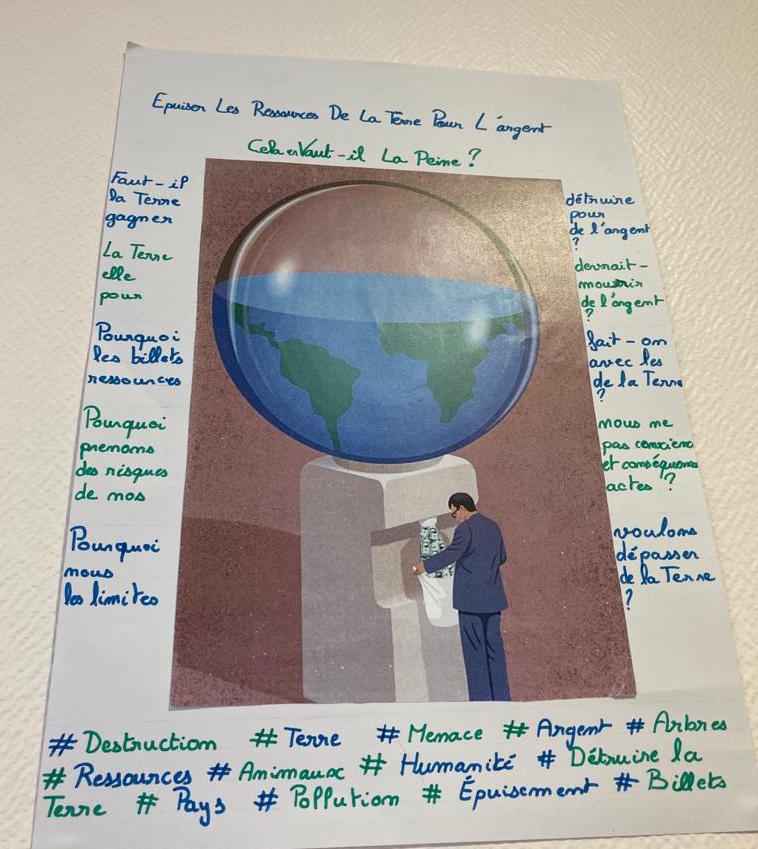 Epuiser Les Ressources De La Terre Pour L'argent
Cela en Vaut-il La Peine ?
Faut-il détruire
la Terre pour
gagner de l'argent
?
La Terre devrait-
elle mourir
pour de l'argent
?
Pourquoi fait-on
les billets avec les
ressources de la Terre
?
Pourquoi nous ne
prenons pas conscience
des risques et conséquences
de nos actes ?
Pourquoi voulons
nous dépasser
les limites de la Terre
?
# Destruction # Terre # Menace # Argent # Arbres
# Ressources # Animaux # Humanité # Détruire la
Terre # Pays # Pollution # Épuisement # Billets